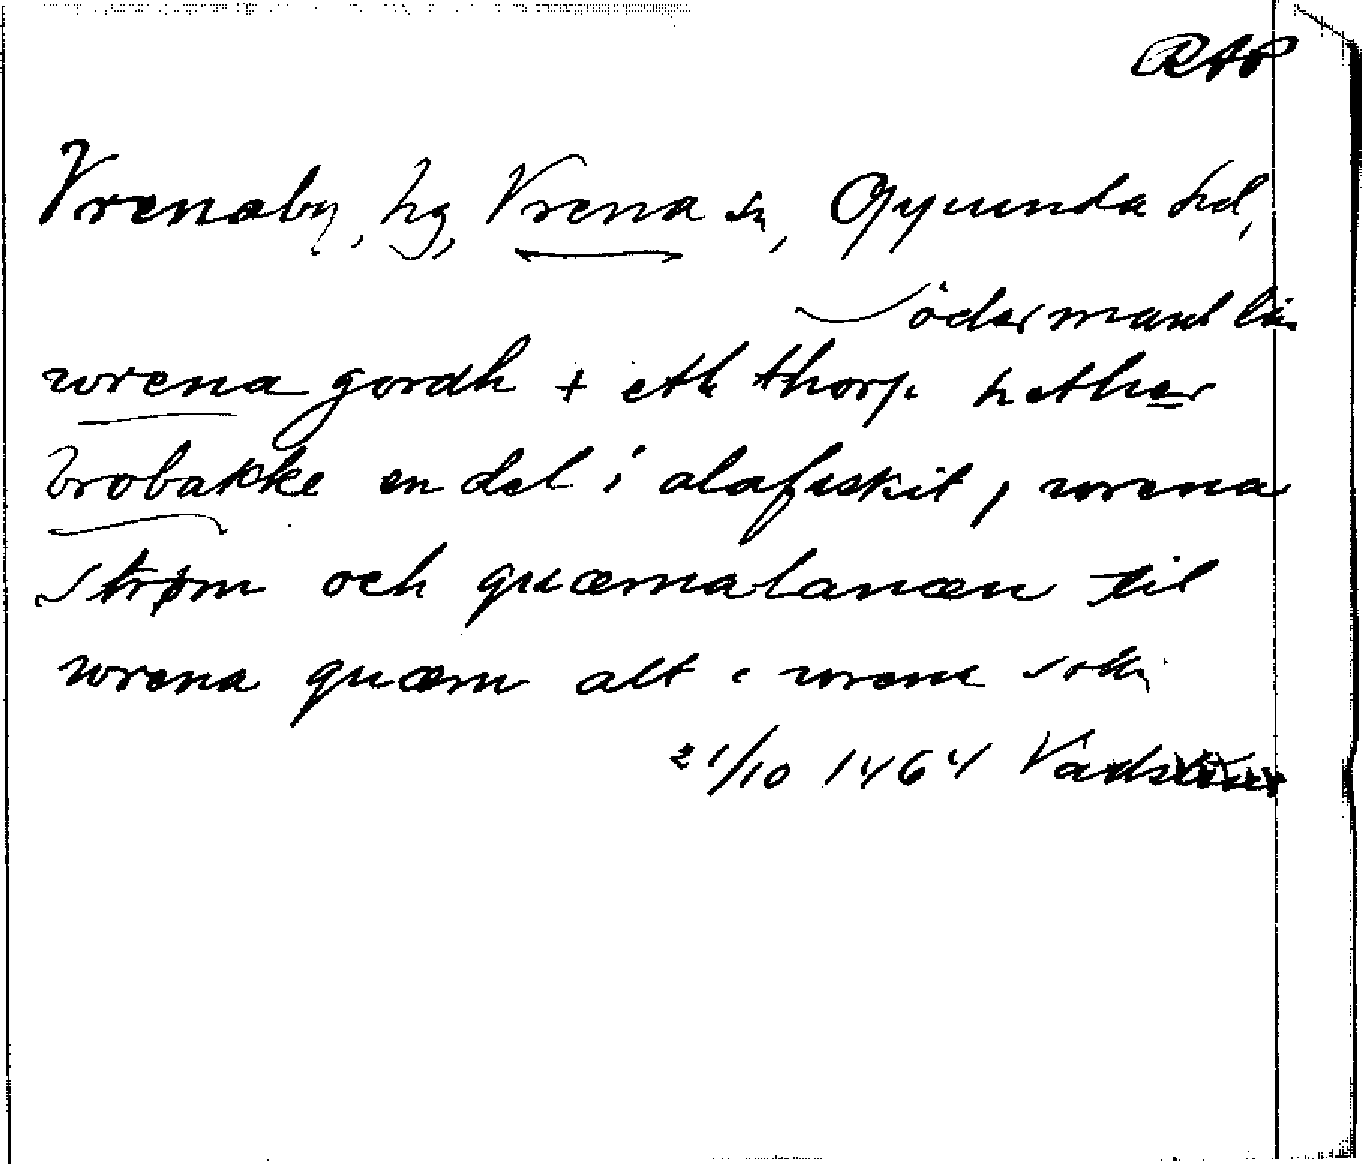 RAP
Vrenaby, hg, Vrena sn, Oppunda hd,
Södermanl län
wrena gordh + eth thorp hether
brobakke en del i alafiskit, wrena
strøm och quærnalanæn til
wrena quærn alt i wrena sokn
21/10 1464 Vadstena